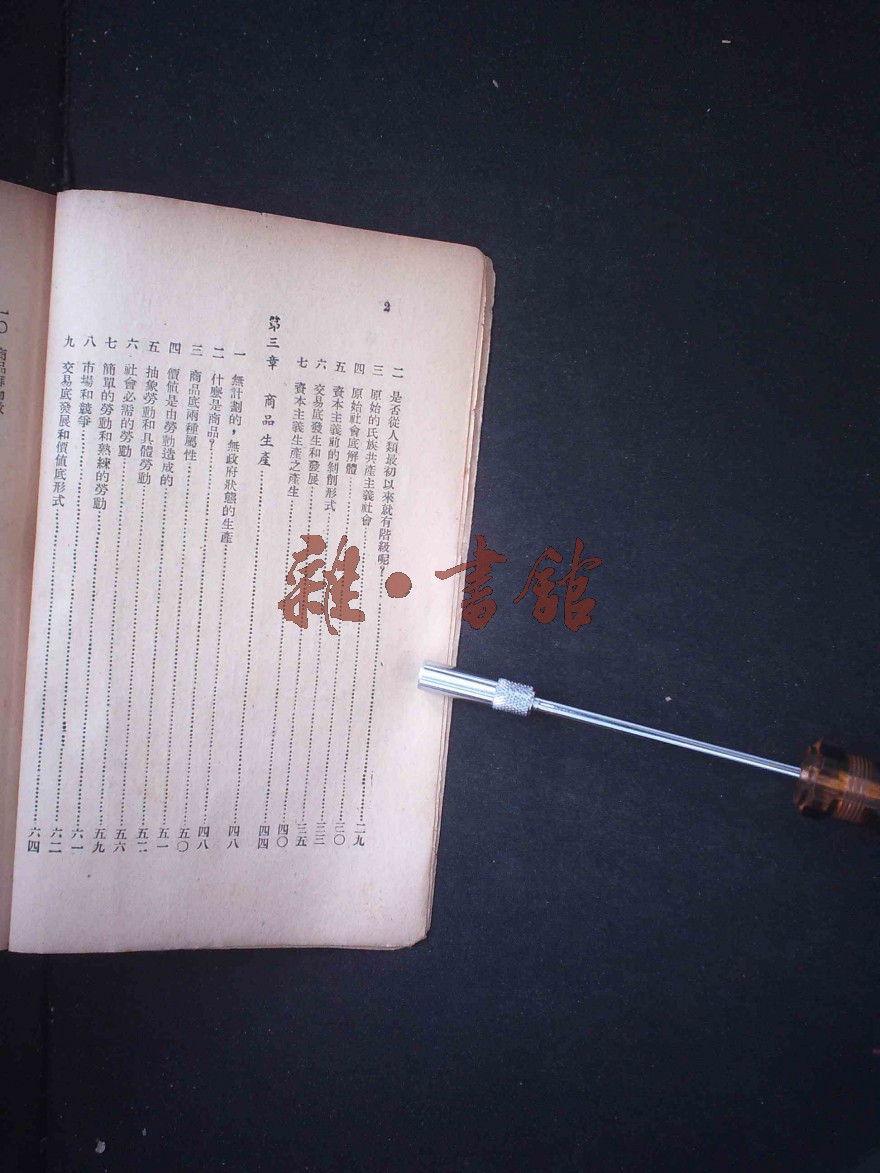 2
二 是否從人類最初以來就有階級呢?……二九
三 原始的氏族共產主義社會……三〇
四 原始社會底解體……三三
五 資本主義前的剝削形式……三五
六 交易底發生和發展……四〇
七 資本主義生產之產生……四四
第三章 商品生產……四八
一 無計劃的,無政府狀態的生產……四八
二 什麼是商品?……五〇
三 商品底兩種屬性……五一
四 價値是由勞動造成的……五二
五 抽象勞動和具體勞動……五六
六 社會必需的勞動……五九
七 簡單的勞動和熟練的勞動……六一
八 市場和競爭……六二
九 交易底發展和價値底形式……六四
一〇 商品
雜·書館